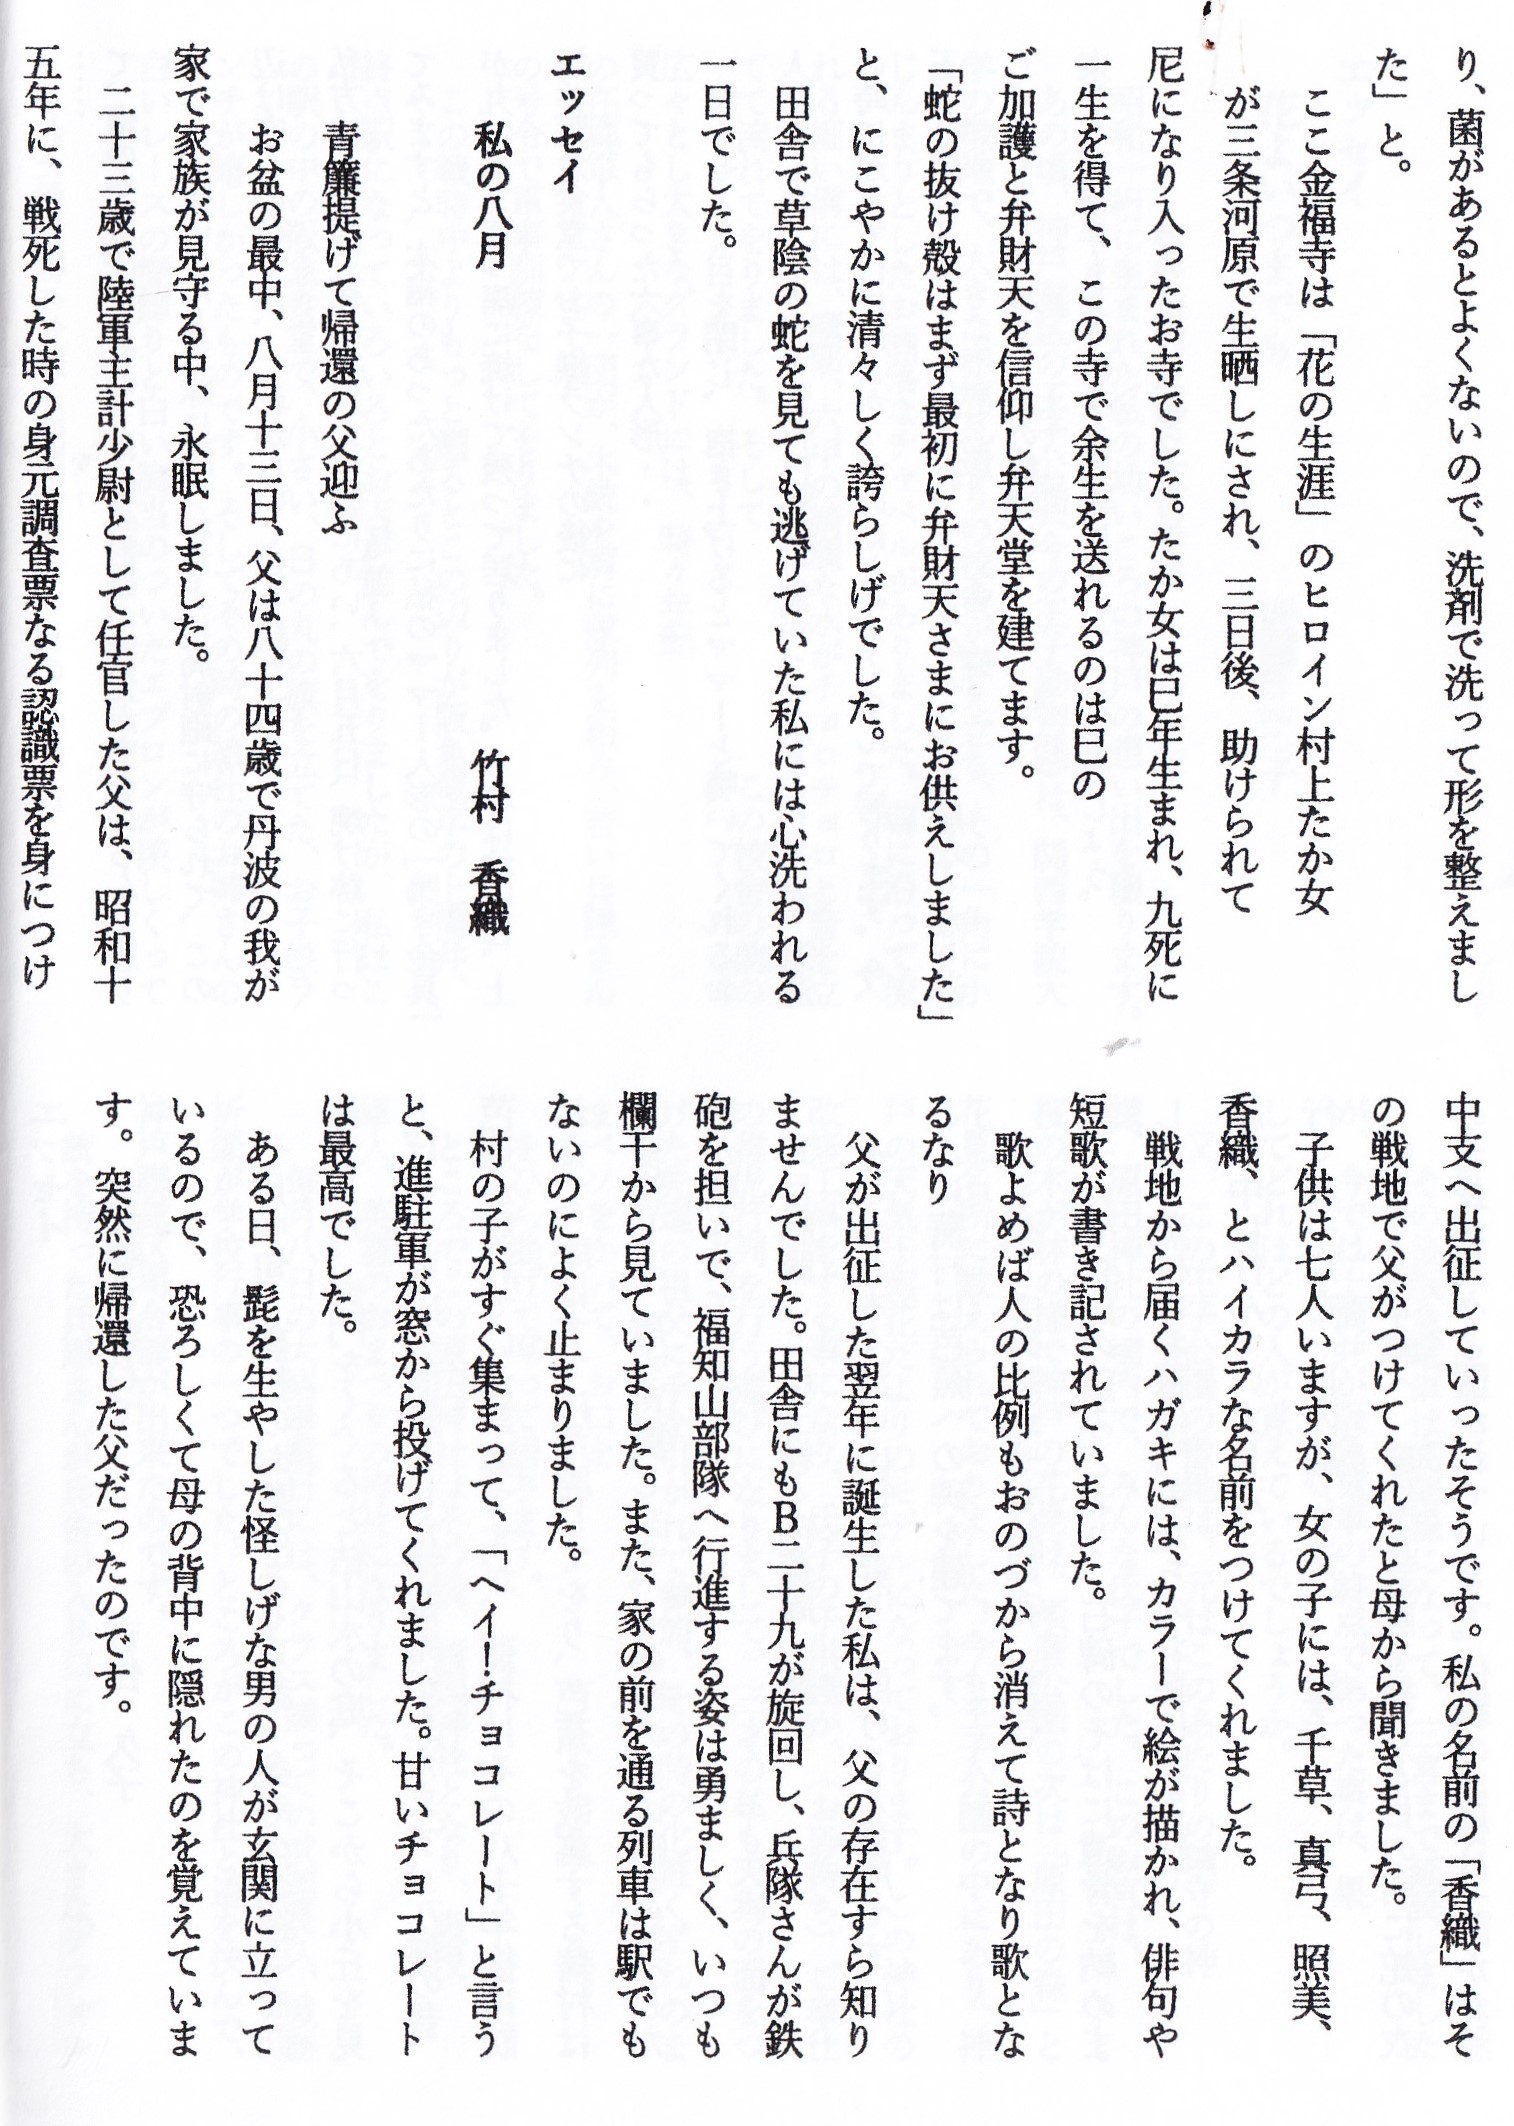 り、菌があるとよくないので、洗剤で洗って形を整えまし
た」と。
ここ金福寺は「花の生涯」のヒロイン村上たか女
が三条河原で生晒しにされ、三日後、助けられて
尼になり入ったお寺でした。たか女は巳年生まれ、九死に
一生を得て、この寺で余生を送れるのは巳の
ご加護と弁財天を信仰し弁天堂を建てます。
「蛇の抜け殻はまず最初に弁財天さまにお供えしました」
と、にこやかに清々しく誇らしげでした。
田舎で草陰の蛇を見ても逃げていた私には心洗われる
一日でした。
エッセイ
私の八月
竹村 香織
青簾提げて帰還の父迎ふ
お盆の最中、八月十三日、父は八十四歳で丹波の我が
家で家族が見守る中、永眠しました。
二十三歳で陸軍主計少尉として任官した父は、昭和十
五年に、戦死した時の身元調査票なる認識票を身につけ
中支へ出征していったそうです。私の名前の「香織」はそ
の戦地で父がつけてくれたと母から聞きました。
子供は七人いますが、女の子には、千草、真弓、照美、
香織、とハイカラな名前をつけてくれました。
戦地から届くハガキには、カラーで絵が描かれ、俳句や
短歌が書き記されていました。
歌よめば人の比例もおのづから消えて詩となり歌とな
るなり
父が出征した翌年に誕生した私は、父の存在すら知り
ませんでした。田舎にもB二十九が旋回し、兵隊さんが鉄
砲を担いで、福知山部隊へ行進する姿は勇ましく、いつも
欄干から見ていました。また、家の前を通る列車は駅でも
ないのによく止まりました。
村の子がすぐ集まって、「ヘイ！チョコレート」と言う
と、進駐軍が窓から投げてくれました。甘いチョコレート
は最高でした。
ある日、髭を生やした怪しげな男の人が玄関に立って
いるので、恐ろしくて母の背中に隠れたのを覚えていま
す。突然に帰還した父だったのです。